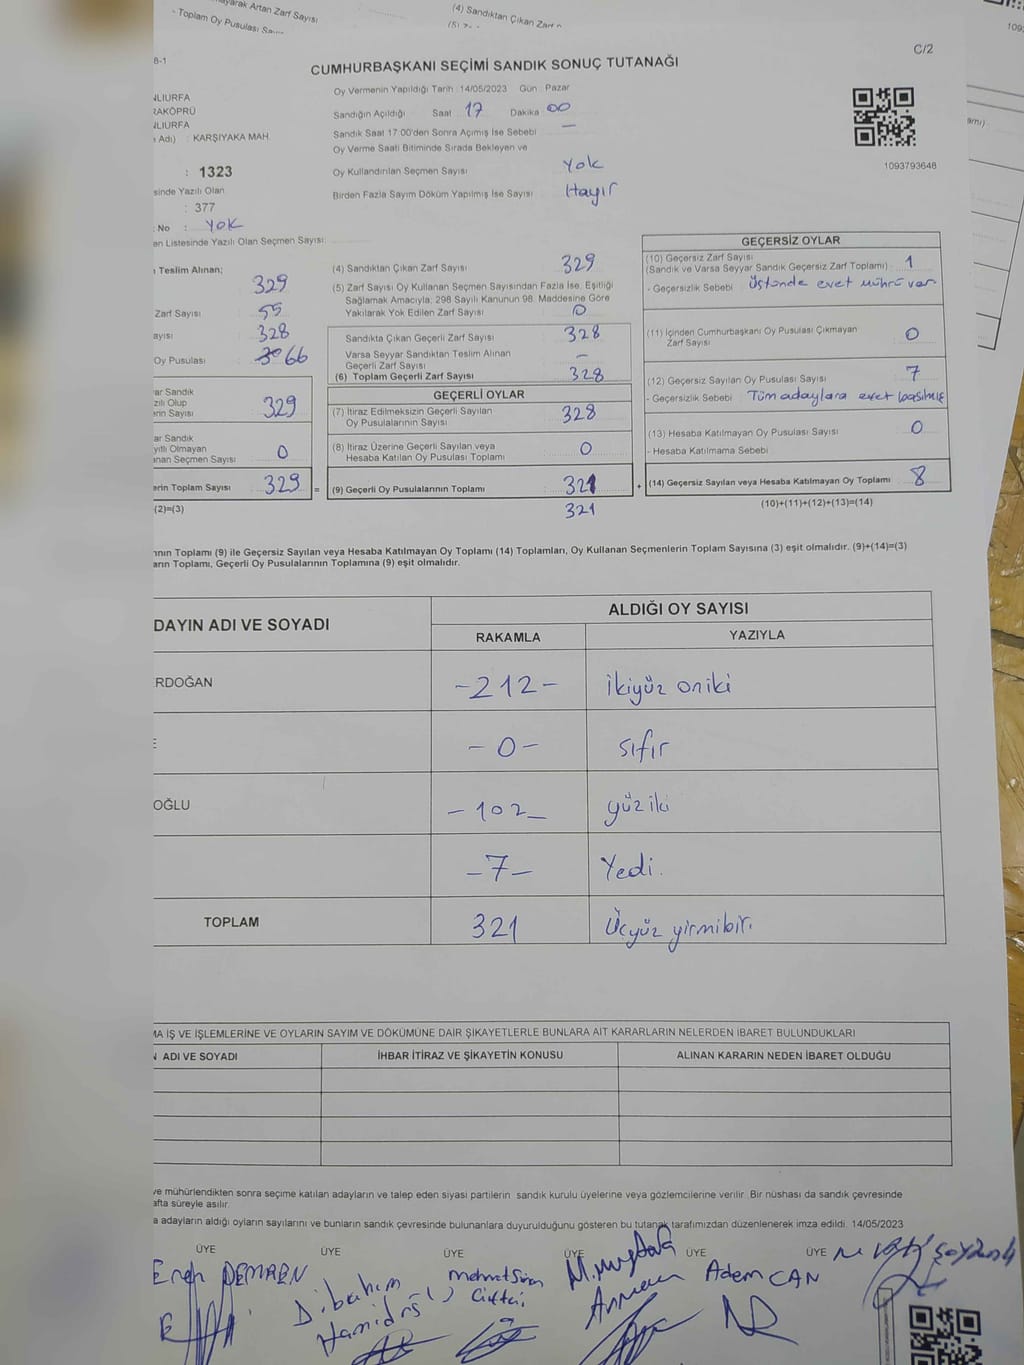 ayarak Artan Zarf Sayısı
- Toplam Oy Pusulası
(4) Sandıktan Çıkan Zarf
C/2
B-1
CUMHURBAŞKANI SEÇİMİ SANDIK SONUÇ TUTANAĞI
Oy Vermenin Yapıldığı Tarih : 14/05/2023 Gün : Pazar
NLIURFA
RAKÖPRÜ
NLIURFA
Adı) : KARŞIYAKA MAH.
Sandığın Açıldığı Saat 17 Dakika 00
Sandık Saat 17:00'den Sonra Açımış İse Sebebi —
Oy Verme Saati Bitiminde Sırada Bekleyen ve
Oy Kullandırılan Seçmen Sayısı Yok
Birden Fazla Sayım Döküm Yapılmış İse Sayısı Hayır
1093793648
: 1323
sinde Yazılı Olan
: 377
No : Yok
en Listesinde Yazılı Olan Seçmen Sayısı:
Teslim Alınan;
329
Zarf Sayısı : 55
ayısı : 328
Oy Pusulası : 66
(4) Sandıktan Çıkan Zarf Sayısı : 329
(5) Zarf Sayısı Oy Kullanan Seçmen Sayısından Fazla İse, Eşitliği
Sağlamak Amacıyla; 298 Sayılı Kanunun 98. Maddesine Göre
Yakılarak Yok Edilen Zarf Sayısı : 0
Sandıkta Çıkan Geçerli Zarf Sayısı : 328
Varsa Seyyar Sandıktan Teslim Alınan
Geçerli Zarf Sayısı : —
(6) Toplam Geçerli Zarf Sayısı : 328
GEÇERLİ OYLAR
(7) İtiraz Edilmeksizin Geçerli Sayılan
Oy Pusulalarının Sayısı : 328
(8) İtiraz Üzerine Geçerli Sayılan veya
Hesaba Katılan Oy Pusulası Toplamı : 0
(9) Geçerli Oy Pusulalarının Toplamı : 321
321
GEÇERSİZ OYLAR
(10) Geçersiz Zarf Sayısı
(Sandık ve Varsa Seyyar Sandık Geçersiz Zarf Toplamı) : 1
- Geçersizlik Sebebi : Üstünde evet mührü var
(11) İçinden Cumhurbaşkanı Oy Pusulası Çıkmayan
Zarf Sayısı : 0
(12) Geçersiz Sayılan Oy Pusulası Sayısı : 7
- Geçersizlik Sebebi : Tüm adaylara evet basılmış
(13) Hesaba Katılmayan Oy Pusulası Sayısı : 0
- Hesaba Katılmama Sebebi
(14) Geçersiz Sayılan veya Hesaba Katılmayan Oy Toplamı : 8
(10)+(11)+(12)+(13)=(14)
ar Sandık
zılı Olup
rin Sayısı : 329
ar Sandık
yıtlı Olmayan
nan Seçmen Sayısı : 0
erin Toplam Sayısı : 329 =
(2)=(3)
nın Toplamı (9) ile Geçersiz Sayılan veya Hesaba Katılmayan Oy Toplamı (14) Toplamları, Oy Kullanan Seçmenlerin Toplam Sayısına (3) eşit olmalıdır. (9)+(14)=(3)
arın Toplamı, Geçerli Oy Pusulalarının Toplamına (9) eşit olmalıdır.
DAYIN ADI VE SOYADI
ALDIĞI OY SAYISI
RAKAMLA
YAZIYLA
RDOĞAN -212- İkiyüz oniki
E -0- sıfır
OĞLU -102- yüziki
-7- Yedi.
TOPLAM 321 Üçyüz yirmibir.
MA İŞ VE İŞLEMLERİNE VE OYLARIN SAYIM VE DÖKÜMÜNE DAİR ŞİKAYETLERLE BUNLARA AİT KARARLARIN NELERDEN İBARET BULUNDUKLARI
N ADI VE SOYADI
İHBAR İTİRAZ VE ŞİKAYETİN KONUSU
ALINAN KARARIN NEDEN İBARET OLDUĞU
ve mühürlendikten sonra seçime katılan adayların ve talep eden siyasi partilerin sandık kurulu üyelerine veya gözlemcilerine verilir. Bir nüshası da sandık çevresinde
afta süreyle asılır.
a adayların aldığı oyların sayılarını ve bunların sandık çevresinde bulunanlara duyurulduğunu gösteren bu tutanak tarafımızdan düzenlenerek imza edildi. 14/05/2023
ÜYE ÜYE ÜYE ÜYE ÜYE ÜYE
Eren DEMREN
İbrahim
Hamidoğ
Mehmet Sinan
Çiftçi
M. Mustafa
Adem CAN